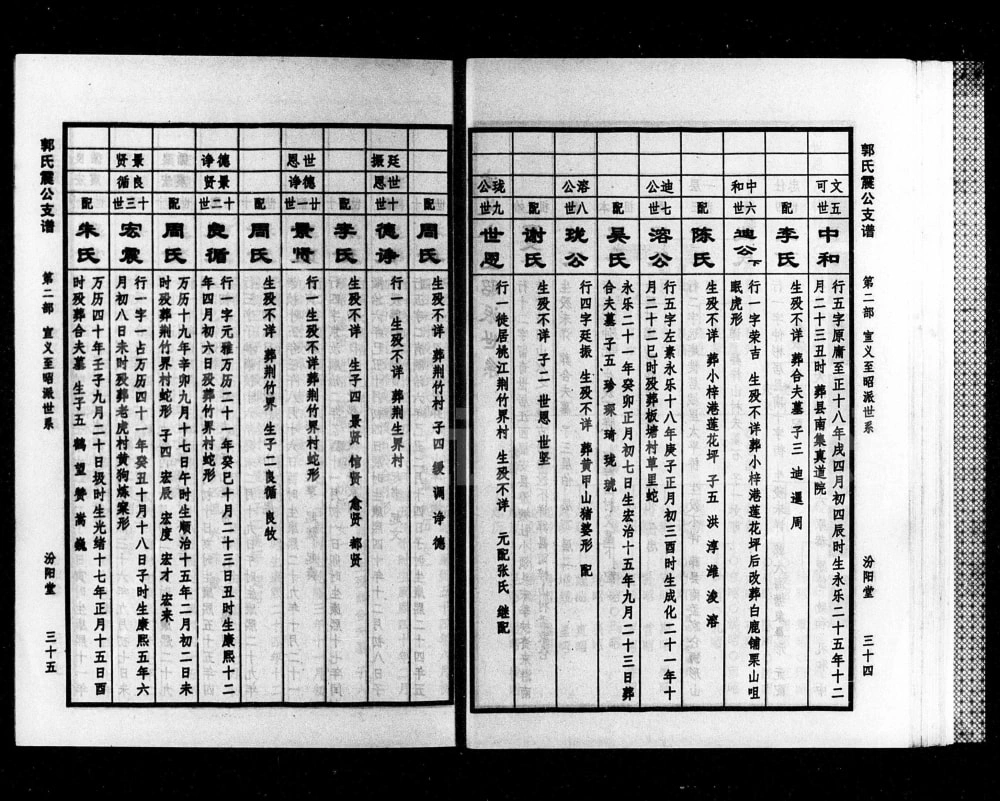 郭氏震公支谱
第二部 宣义至昭派世系
汾阳堂
三十四
文可
五世
中和
行五字原庸至正十八年戌四月初四辰时生永乐二十五年十二
月二十三丑时 葬县南集真道院
配
李氏
生殁不详 葬合夫墓 子三 迪 暹 周
中和
六世
迪公下
行一字荣吉 生殁不详葬小梓港莲花坪后改葬白鹿铺栗山咀
眠虎形
配
陈氏
生殁不详 葬小梓港莲花坪 子五 洪 淳 潍 浚 溶
迪公
七世
溶公
行五字左素永乐十八年庚子正月初三酉时生成化二十一年十
月二十二巳时殁葬板塘村草里蛇
配
吴氏
永乐二十一年癸卯正月初七日生宏治十五年九月二十三日葬
合夫墓 子五 珍 琛 琦 珑 琥
溶公
八世
珑公
行四字廷振 生殁不详 葬黄甲山猪婆形 配
配
谢氏
生殁不详 子二 世恩 世坚
珑公
九世
世恩
行一徙居桃江荆竹界村 生殁不详 元配张氏 继配
周氏
配
生殁不详 葬荆竹村 子四 缓 调 诤 德
廷振
世恩
十世
德诤
行一 生殁不详 葬荆生界村
配
李氏
生殁不详 生子四 景贤 馆贤 愈贤 都贤
世恩
德诤
廿一世
景贤
行一生殁不详葬荆竹界村蛇形
配
周氏
生殁不详 葬荆竹界 生子二良循 良牧
德诤
景贤
十二世
良循
行一字元雅万历二十一年癸巳十月二十三日丑时生康熙十二
年四月初六日殁葬竹界村蛇形
配
周氏
万历十九年辛卯九月十七日午时生顺治十五年二月初二日未
时殁葬荆竹界村蛇形 子四 宏辰 宏度 宏才 宏来
景贤
良循
十三世
宏震
行一字一占万历四十一年癸丑十月十八日子时生康熙五年六
月初八日未时殁葬老虎村黄狗炼窠形
配
朱氏
万历四十年壬子九月二十日圾时生光绪十七年正月十五日酉
时殁葬合夫墓 生子五 鹤 望 赞 嵩 巍
郭氏震公支谱
第二部 宣义至昭派世系
汾阳堂
三十五